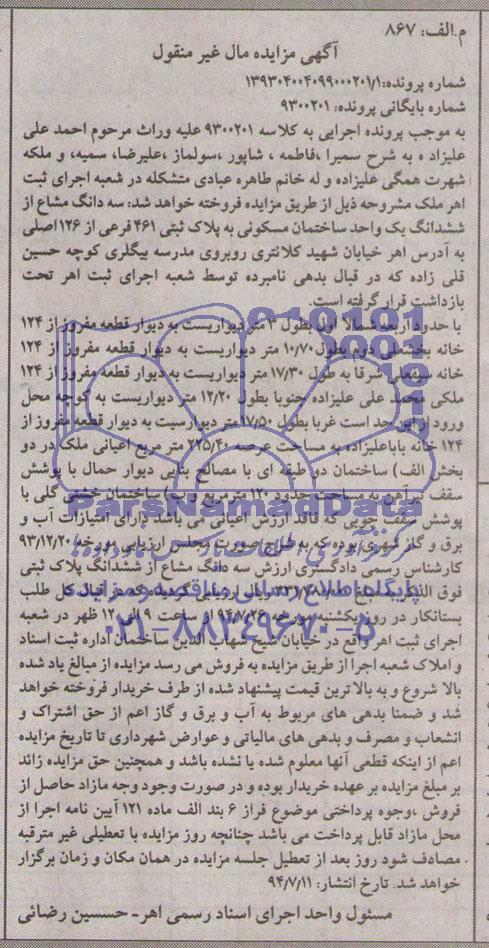 م.الف: ۸۶۷
آگهی مزایده مال غیر منقول
شماره پرونده:۱۳۹۳۰۴۰۰۴۰۹۹۰۰۰۲۰۱/۱
شماره بایگانی پرونده: ۹۳۰۰۲۰۱
به موجب پرونده اجرایی به کلاسه ۹۳۰۰۲۰۱ علیه وراث مرحوم احمد علی
علیزاد ه به شرح سمیرا ،فاطمه ، شاپور ،سولماز ،علیرضا، سمیه، و ملکه
شهرت همگی علیزاده و له خانم طاهره عبادی متشکله در شعبه اجرای ثبت
اهر ملک مشروحه ذیل از طریق مزایده فروخته خواهد شد: سه دانگ مشاع از
ششدانگ یک واحد ساختمان مسکونی به پلاک ثبتی ۴۶۱ فرعی از ۱۲۶اصلی
به آدرس اهر خیابان شهید کلانتری روبروی مدرسه بیگلری کوچه حسین
قلی زاده که در قبال بدهی نامبرده توسط شعبه اجرای ثبت اهر تحت
بازداشت قرار گرفته است.
با حدود اربعه شمالا اول بطول ۳ متر دیواریست به دیوار قطعه مفروز از ۱۲۴
خانه بخشعلی دوم بطول ۱۰/۷۰ متر دیواریست به دیوار قطعه مفروز از ۱۲۴
خانه سیفعلی شرقا به طول ۱۷/۳۰ متر دیواریست به دیوار قطعه مفروز از ۱۲۴
ملکی محمد علی علیزاده جنوبا بطول ۱۲/۲۰ متر دیواریست به کوچه محل
ورود از این حد است غربا بطول ۱۷/۵۰متر دیوارسیت به دیوار قطعه مفروز از
۱۲۴ خانه باباعلیزاده به مساحت عرصه ۲۲۵/۴۰ متر مربع اعیانی ملک در دو
بخش الف) ساختمان دو طبقه ای با مصالح بنایی دیوار حمال با پوشش
سقف تیرآهن به مساحت حدود ۱۲۰ مترمربع و ب) ساختمان خشتی گلی با
پوشش سقف چوبی که فاقد ارزش اعیانی می باشد دارای امتیازات آب و
برق و گاز شهری بوده که به طرح صورت مجلس ارزیابی مورخه ۹۳/۱۲/۲۰
کارشناس رسمی دادگستری ارزش سه دانگ مشاع از ششدانگ پلاک ثبتی
فوق الذکر به مبلغ ریال ارزیابی گردیده که در قبال کل طلب
بستانکار در روز یکشنبه مورخه ۹۴/۷/۲۶ از ساعت ۹ الی ۱۲ ظهر در شعبه
اجرای ثبت اهر واقع در خیابان شیخ شهاب الدین ساختمان اداره ثبت اسناد
و املاک شعبه اجرا از طریق مزایده به فروش می رسد مزایده از مبالغ یاد شده
بالا شروع و به بالا ترین قیمت پیشنهاد شده از طرف خریدار فروخته خواهد
شد و ضمنا بدهی های مربوط به آب و برق و گاز اعم از حق اشتراک و
انشعاب و مصرف و بدهی های مالیاتی و عوارض شهرداری تا تاریخ مزایده
اعم از اینکه قطعی آنها معلوم شده یا نشده باشد و همچنین حق مزایده زائد
بر مبلغ مزایده بر عهده خریدار بوده و در صورت وجود وجه مازاد حاصل از
فروش ،وجوه پرداختی موضوع فراز ۶ بند الف ماده ۱۲۱ آیین نامه اجرا از
محل مازاد قابل پرداخت می باشد چنانچه روز مزایده با تعطیلی غیر مترقبه
مصادف شود روز بعد از تعطیل جلسه مزایده در همان مکان و زمان برگزار
خواهد شد. تاریخ انتشار: ۹۴/۷/۱۱
مسئول واحد اجرای اسناد رسمی اهر- حسسین رضائی
ParsNamadData
پایگاه اطلاع رسانی مناقصه و مزایده
۰۲۱-۸۸۳۴۹۶۷۰-۵